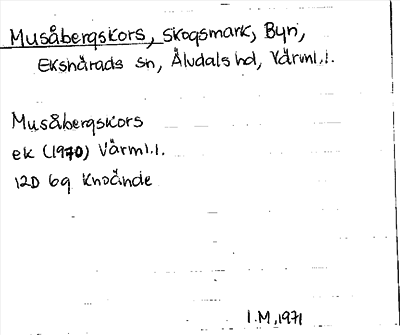 Musåbergskors, skogsmark, Byn,
Ekshärads sn, Älvdals hd, Värml.l.
Musåbergskors
ek (1970) Värml.l.
12D 6g Knoände
I.M, 1971